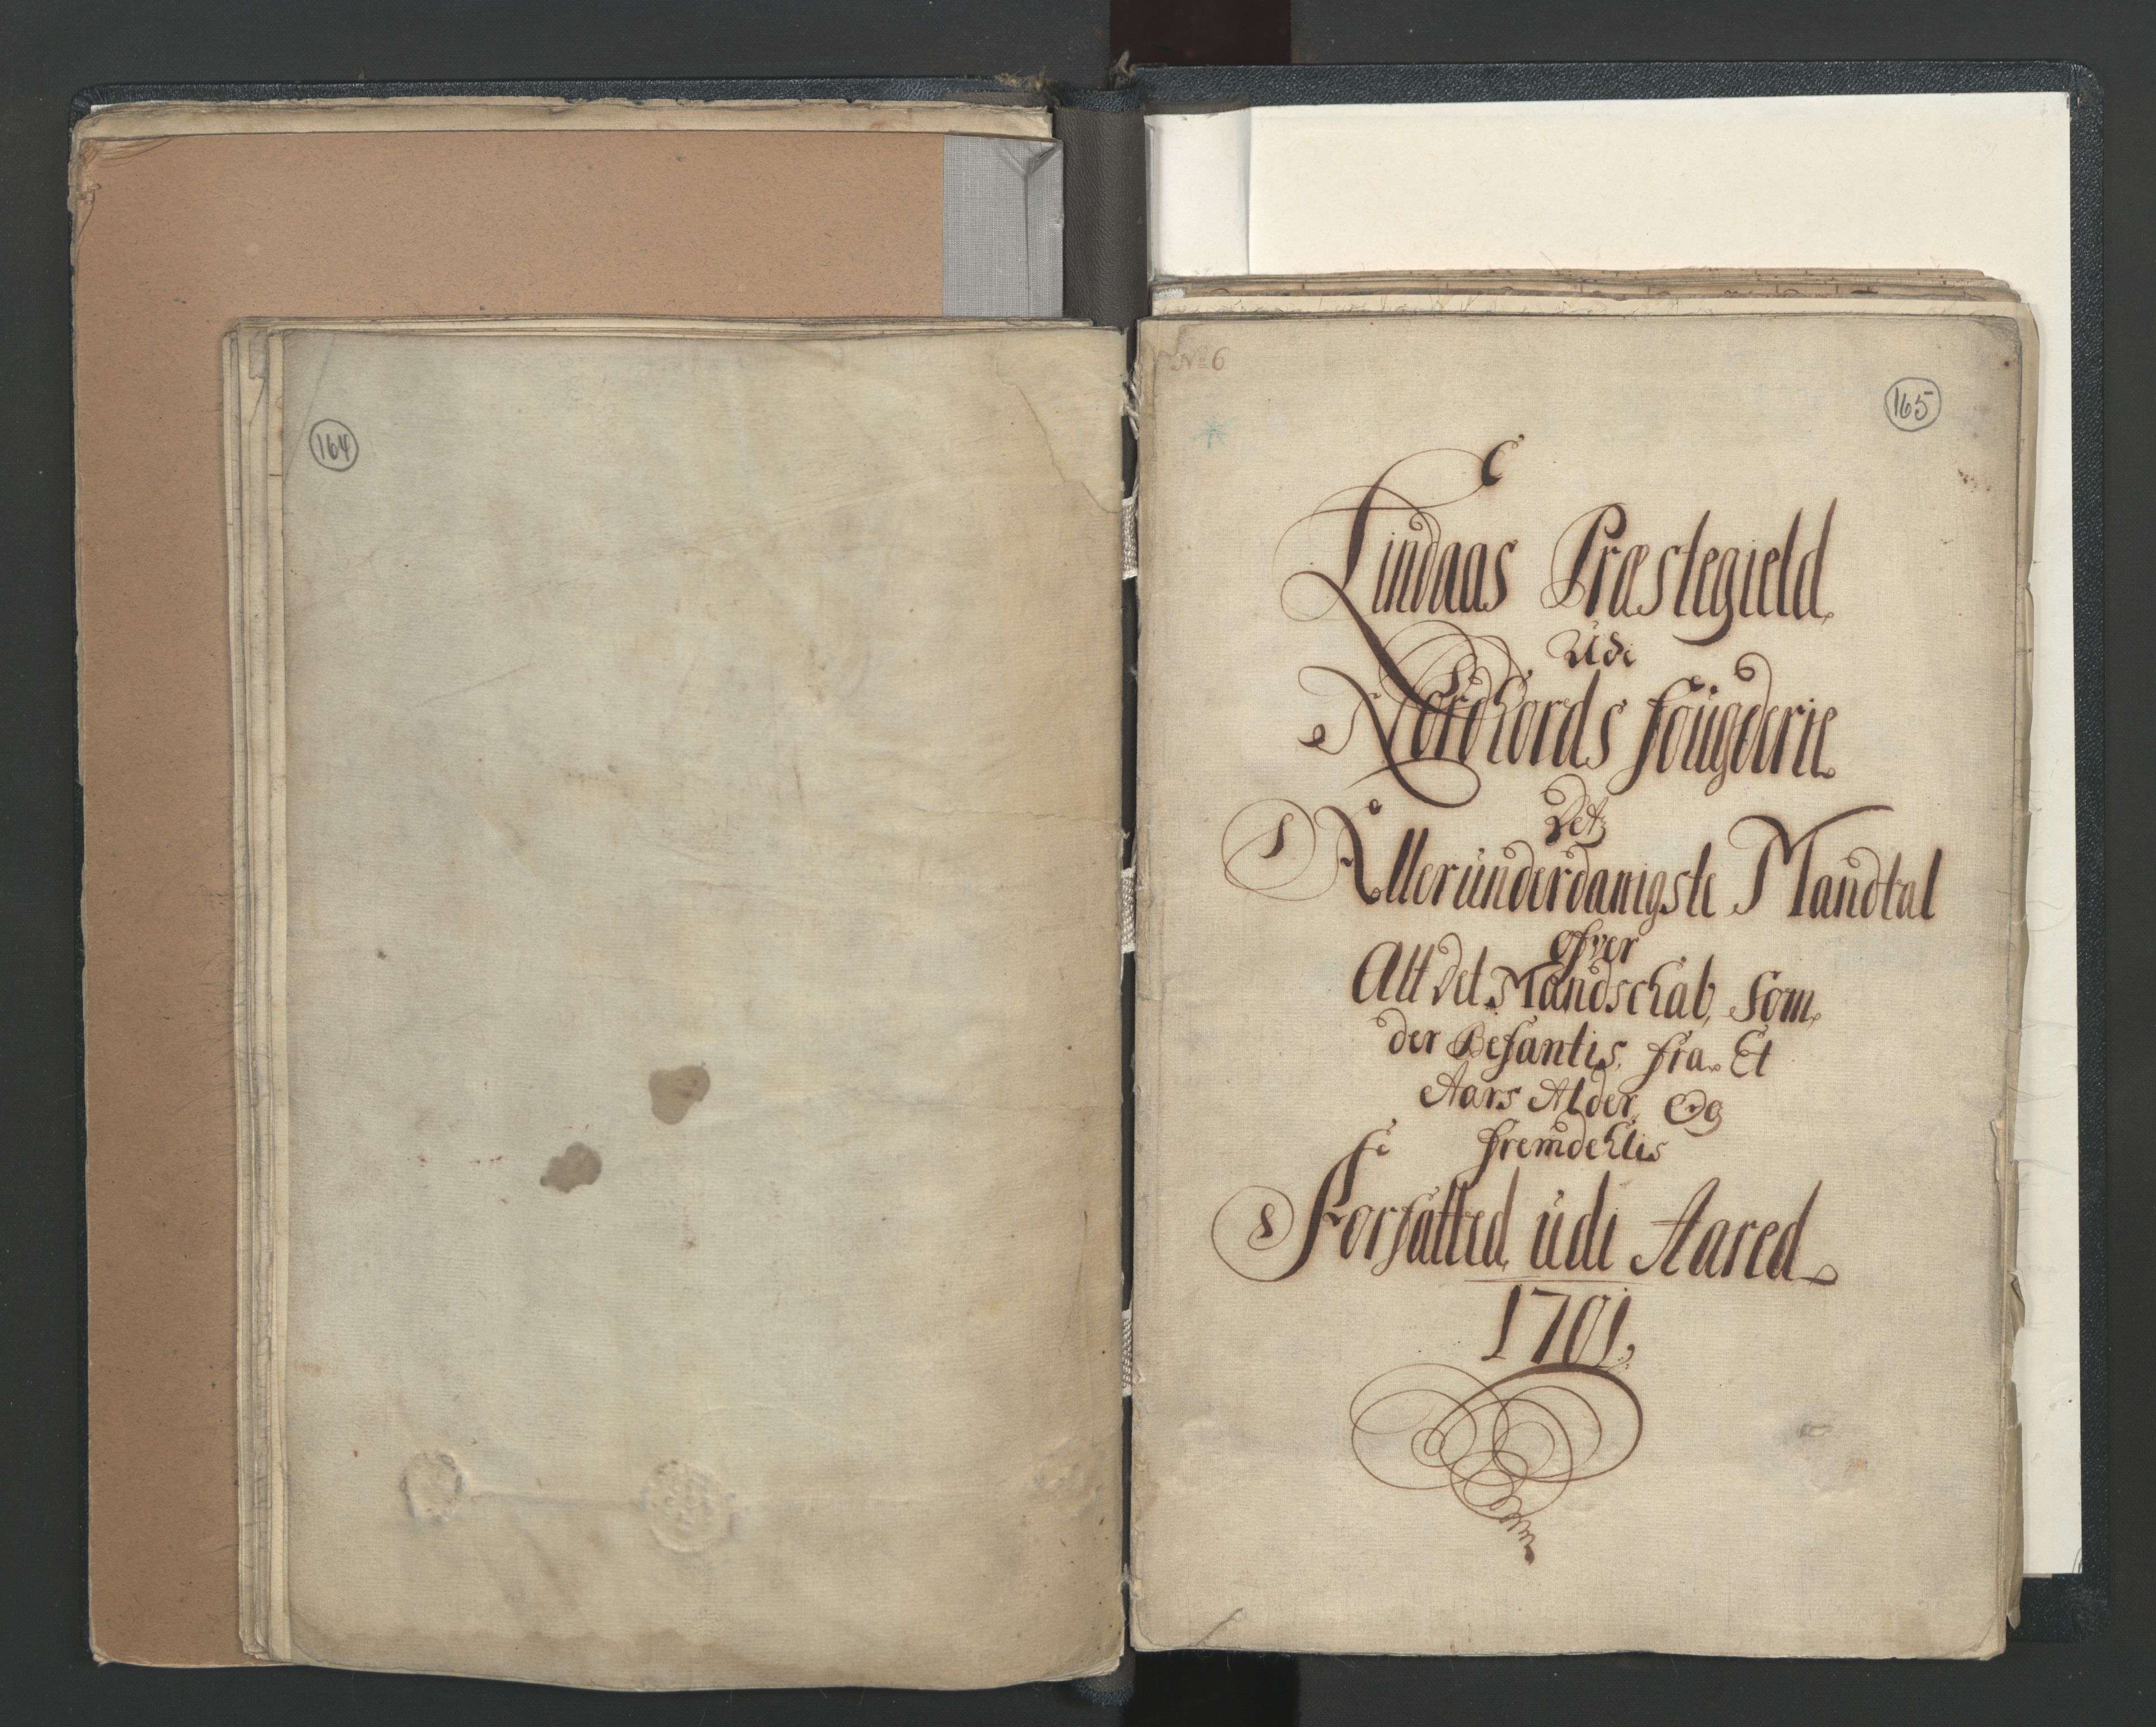 164
No 6
165
Lindaas Præstegield
udi
Nordhords fougderie
Det
Alleründerdanigste Mandtal
ofver
Alt det Mandschab, som
der Befantis, fra Et
Aars Alder, Og
fremdehlis
Forfatted üdi Aared
1701.